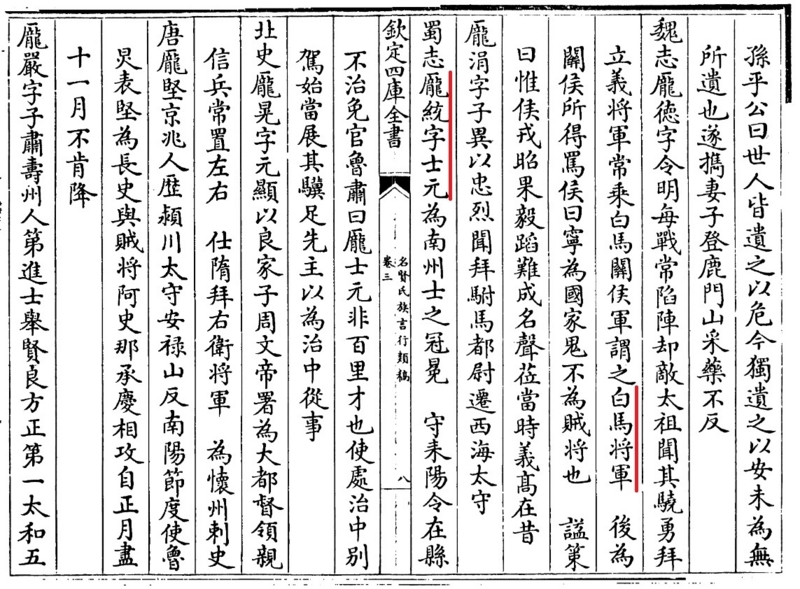 孫乎公曰世人皆遺之以危今獨遺之以安未為無
所遺也遂携妻子登鹿門山采藥不反
魏志龐德字令明每戰常陷陣却敵太祖聞其驍勇拜
立義將軍常乘白馬關侯軍謂之白馬將軍 後為
關侯所得罵侯曰寧為國家鬼不為賊將也 諡策
曰惟侯戎昭果毅蹈難成名聲莅當時義高在昔
龐涓字子異以忠烈聞拜駙馬都尉遷西海太守
蜀志龐統字士元為南州士之冠冕 守耒陽令在縣
欽定四庫全書
名賢氏族言行類稿
卷三
八
不治免官魯肅曰龐士元非百里才也使處治中別
駕始當展其驥足先主以為治中從事
北史龐晃字元顯以良家子周文帝署為大都督領親
信兵常置左右 仕隋拜右衛將軍 為懷州刺史
唐龐堅京兆人歷潁川太守安祿山反南陽節度使魯
炅表堅為長史與賊將阿史那承慶相攻自正月盡
十一月不肯降
龐嚴字子肅壽州人第進士舉賢良方正第一太和五